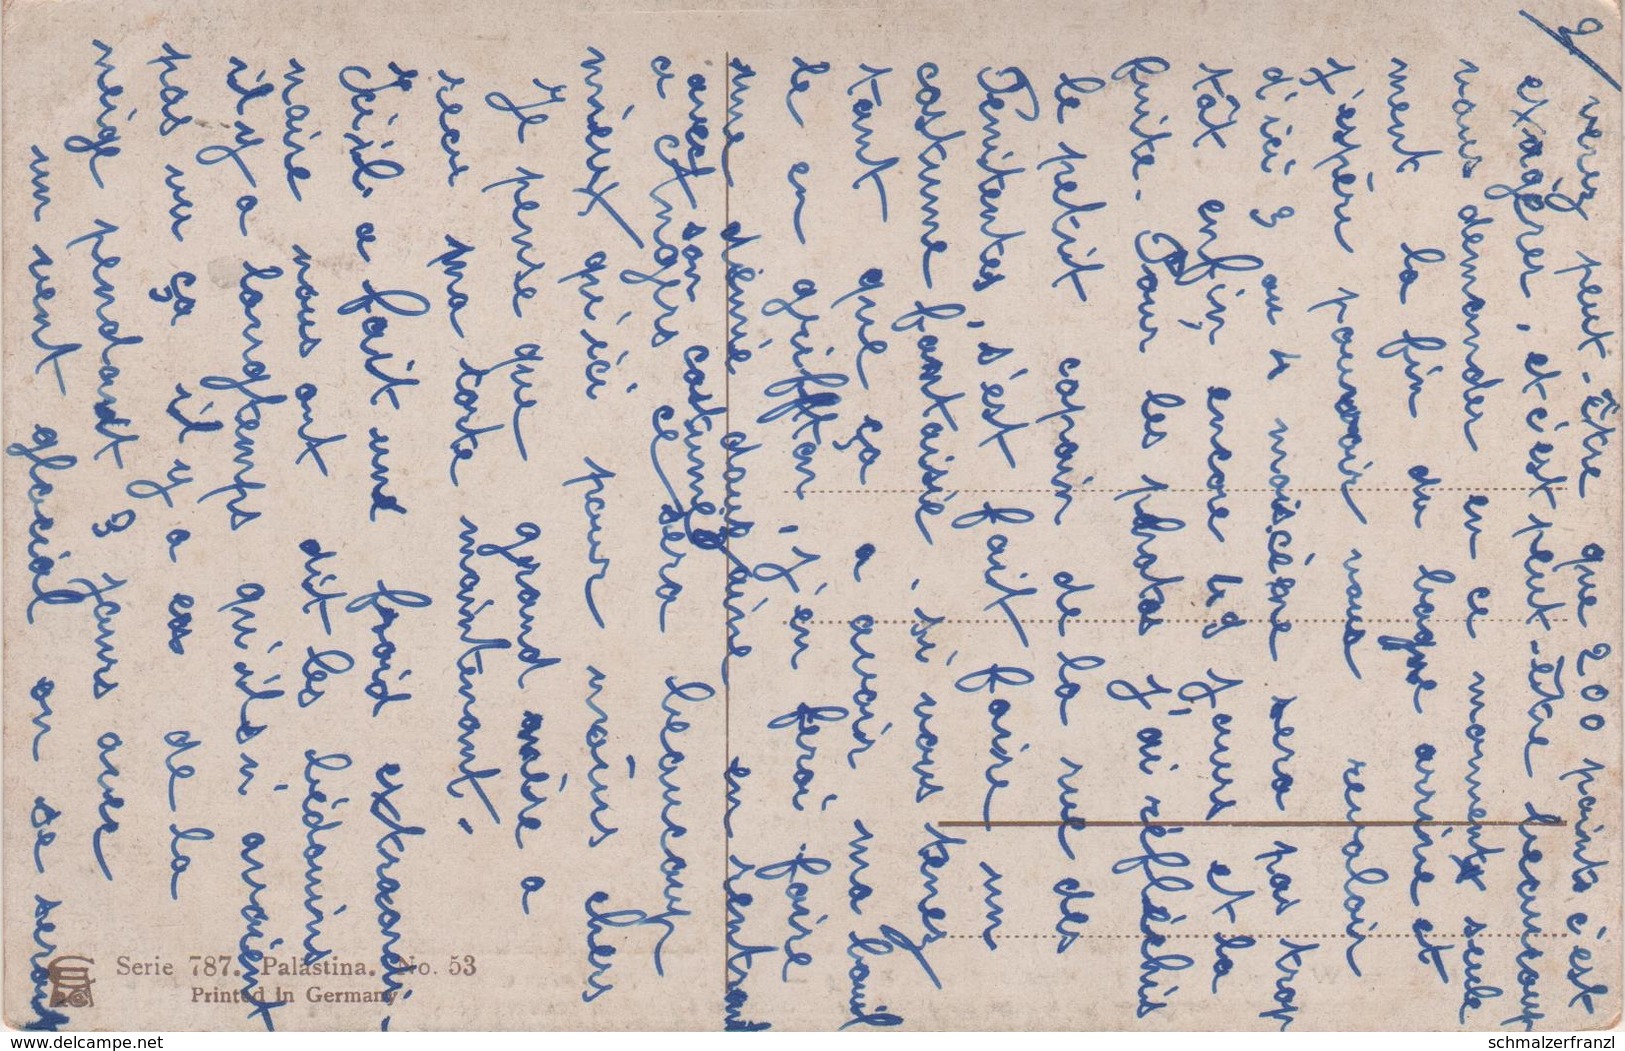 2/
verez peut-être que 200 points c'est
exagérer, et c'est peut-être beaucoup
vous demander en ce moment seule
ment la fin du bagne arrive et
j'espère pouvoir vous revaloir
d'ici 3 ou 4 mois cène sera pas trop
tôt enfin encore 49 jours et la
fuite. Pour les photos j'ai réfléchis
le petit copain de la rue des
Penitentes, s'est fait faire un
costume fantaisie, si vous tenez
tant que ça a avoir ma bouil
le en griffton, j'en ferai faire
une dirrie daus aire en rentrant
avec son costume
a Angers ce sera beaucoup
mieux qu'ici pour moins chers
Je pense que grand mère a
recu ma carte maintenant.
Ici il a fait une froid extraordi-
naire nous ont dit les bédouins
il y a longtemps qu'ils n'avaient
pas vu ça il y a eu de la
neige pendant 3 jours avec
un vent glacial on se serait
Serie 787. Palästina. No. 53
Printed in Germany
www.delcampe.net
schmalzerfranzl